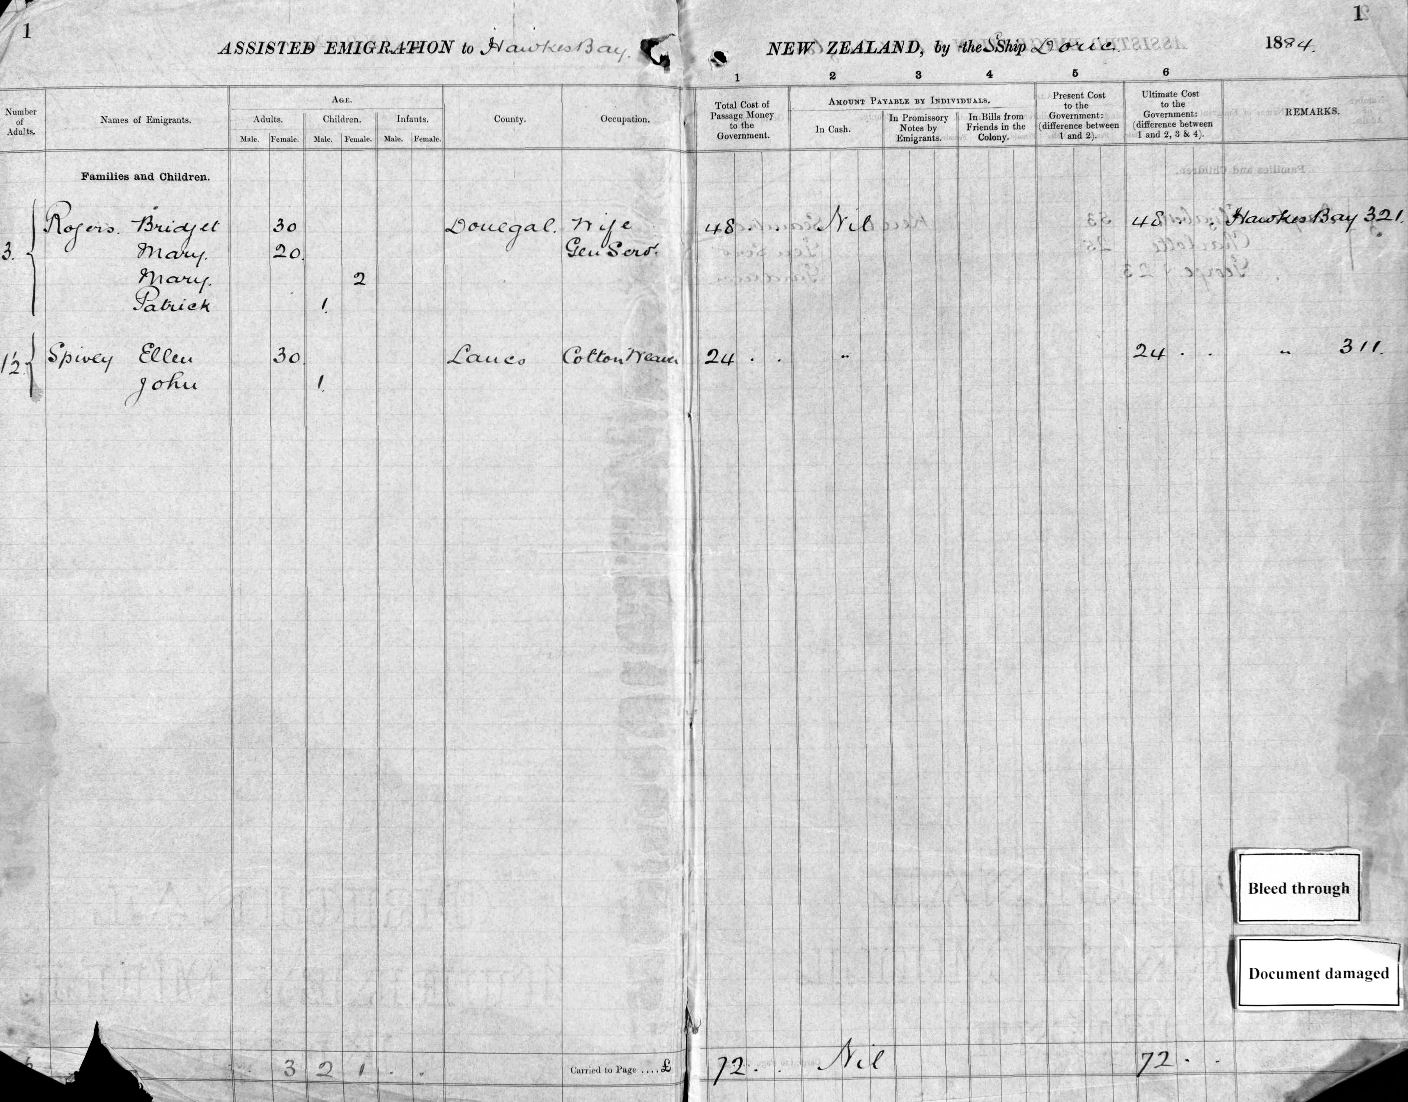 1
1
ASSISTED EMIGRATION to Hawkes Bay. NEW ZEALAND, by the SShip Doric. 1884.
1 2 3 4 5 6
Number of Adults.
Names of Emigrants.
AGE.
Adults. Children. Infants.
Male. Female. Male. Female. Male. Female.
County.
Occupation.
Total Cost of Passage Money to the Government.
AMOUNT PAYABLE BY INDIVIDUALS.
In Cash.
In Promissory Notes by Emigrants.
In Bills from Friends in the Colony.
Present Cost to the Government: (difference between 1 and 2).
Ultimate Cost to the Government: (difference between 1 and 2, 3 & 4).
REMARKS.
Families and Children.
3. Rogers. Bridget 30 Donegal. Wife 48 . . Nil 48 . . Hawkes Bay 321.
Mary. 20. Gen Serv.
Mary. 2
Patrick 1.
1½ Spivey Ellen 30 Lancs Cotton Weaver 24 . . " 24 . . " 311.
John 1.
3 2 1 . . Carried to Page ....£ 72 . . Nil 72 . .
Bleed through
Document damaged